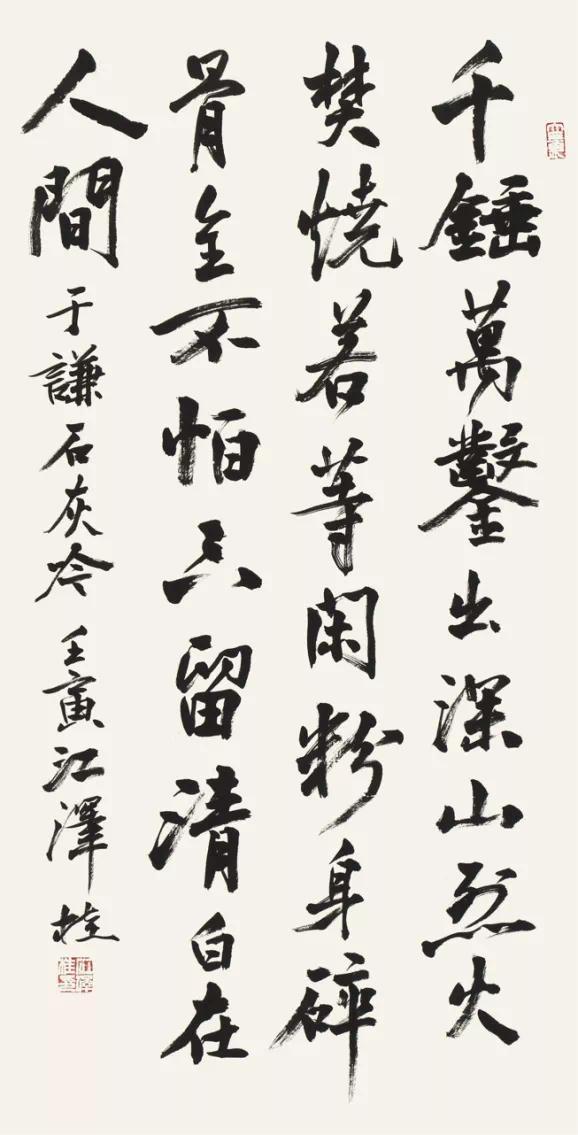 千錘萬鑿出深山烈火
焚燒若等閑粉身碎
骨全不怕只留清白在
人間 于謙石灰吟 壬寅江澤桂